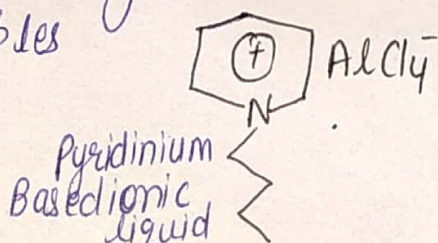 bles
+
AlCl4-
N
Pyridinium
Based ionic
liquid